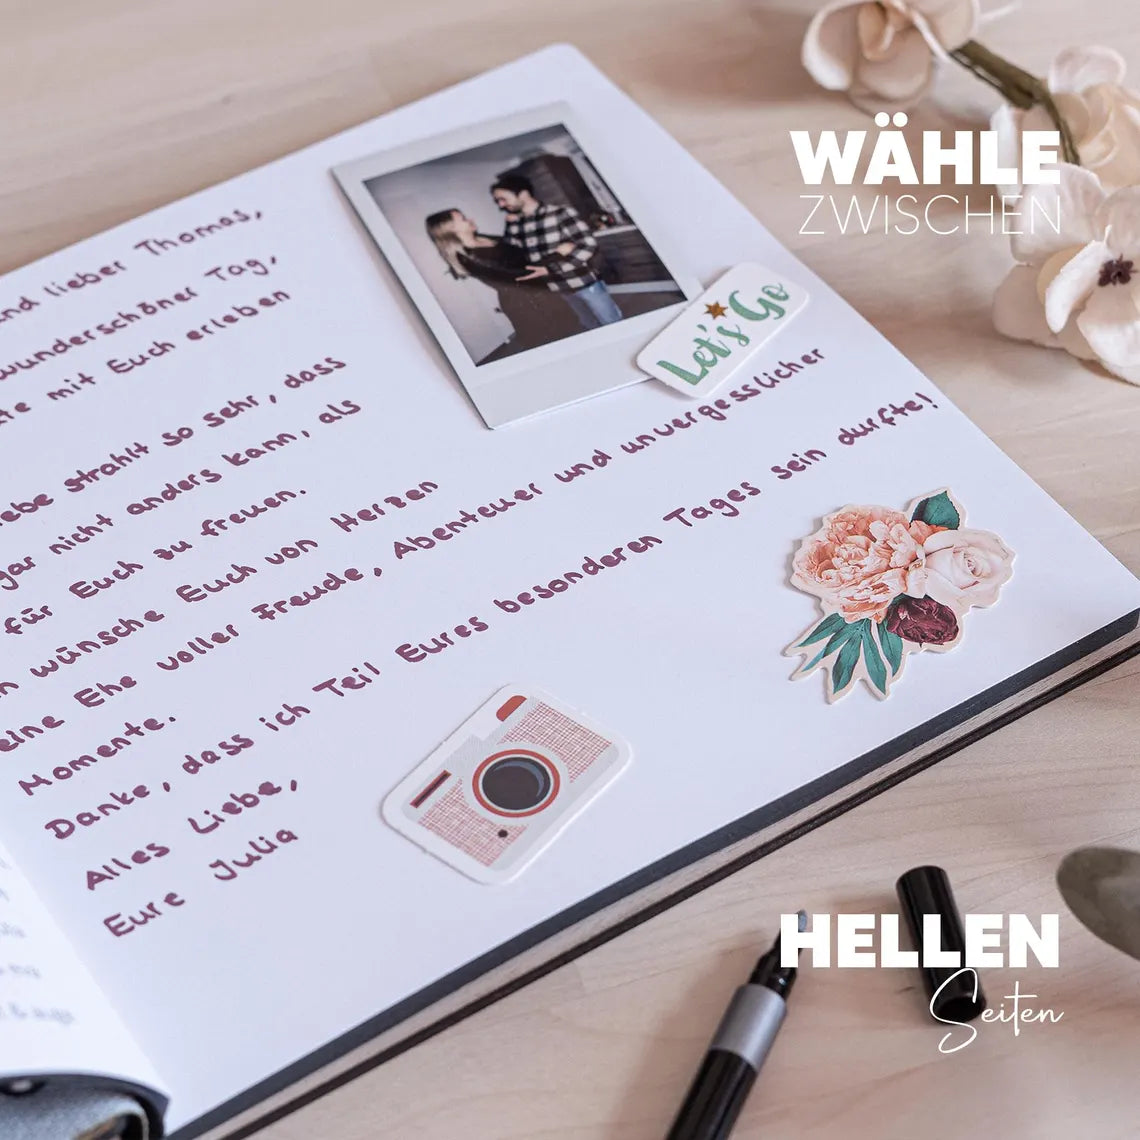 WÄHLE
ZWISCHEN
und lieber Thomas,
wunderschöner Tag,
mit Euch erleben
strahlt so sehr, dass
gar nicht anders kann, als
für Euch zu freuen.
wünsche Euch von Herzen
eine Ehe voller Freude, Abenteuer und unvergesslicher
Momente.
Danke, dass ich Teil Eures besonderen Tages sein durfte!
Alles Liebe,
Eure Julia
Let's Go
HELLEN
Seiten